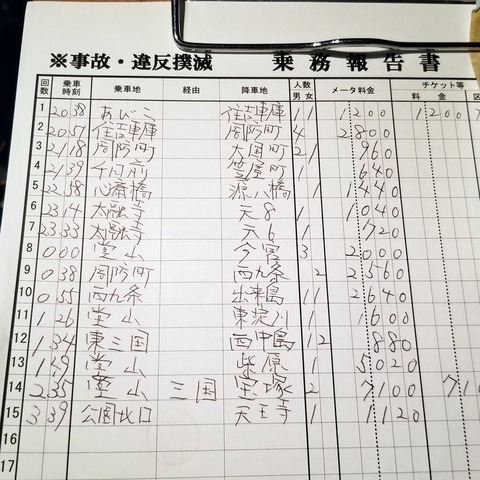 ※事故・違反撲滅 乗務報告書
回数 乗車時刻 乗車地 経由 降車地 人数 男 女 メータ料金 チケット等 料金 区
1 20 38 あびこ 住吉車庫 1 1 1200 1200
2 20 57 住吉車庫 周防町 4 2800
3 21 18 周防町 大国町 2 1 960
4 21 39 千日前 笠屋町 1 640
5 22 58 心斎橋 源八橋 1 1440
6 23 14 太融寺 天8 1 1040
7 23 33 太融寺 天6 1 720
8 0 00 堂山 今宮 3 2000
9 0 38 周防町 西九条 2 2560
10 0 55 西九条 出来島 1 1 2640
11 1 26 堂山 東淀川 1 1600
12 1 34 東三国 西中島 1 2 880
13 1 49 堂山 柴原 1 5020
14 2 35 堂山 三国 宝塚 2 7100 710
15 3 39 公園北口 天王寺 1 1120
16
17